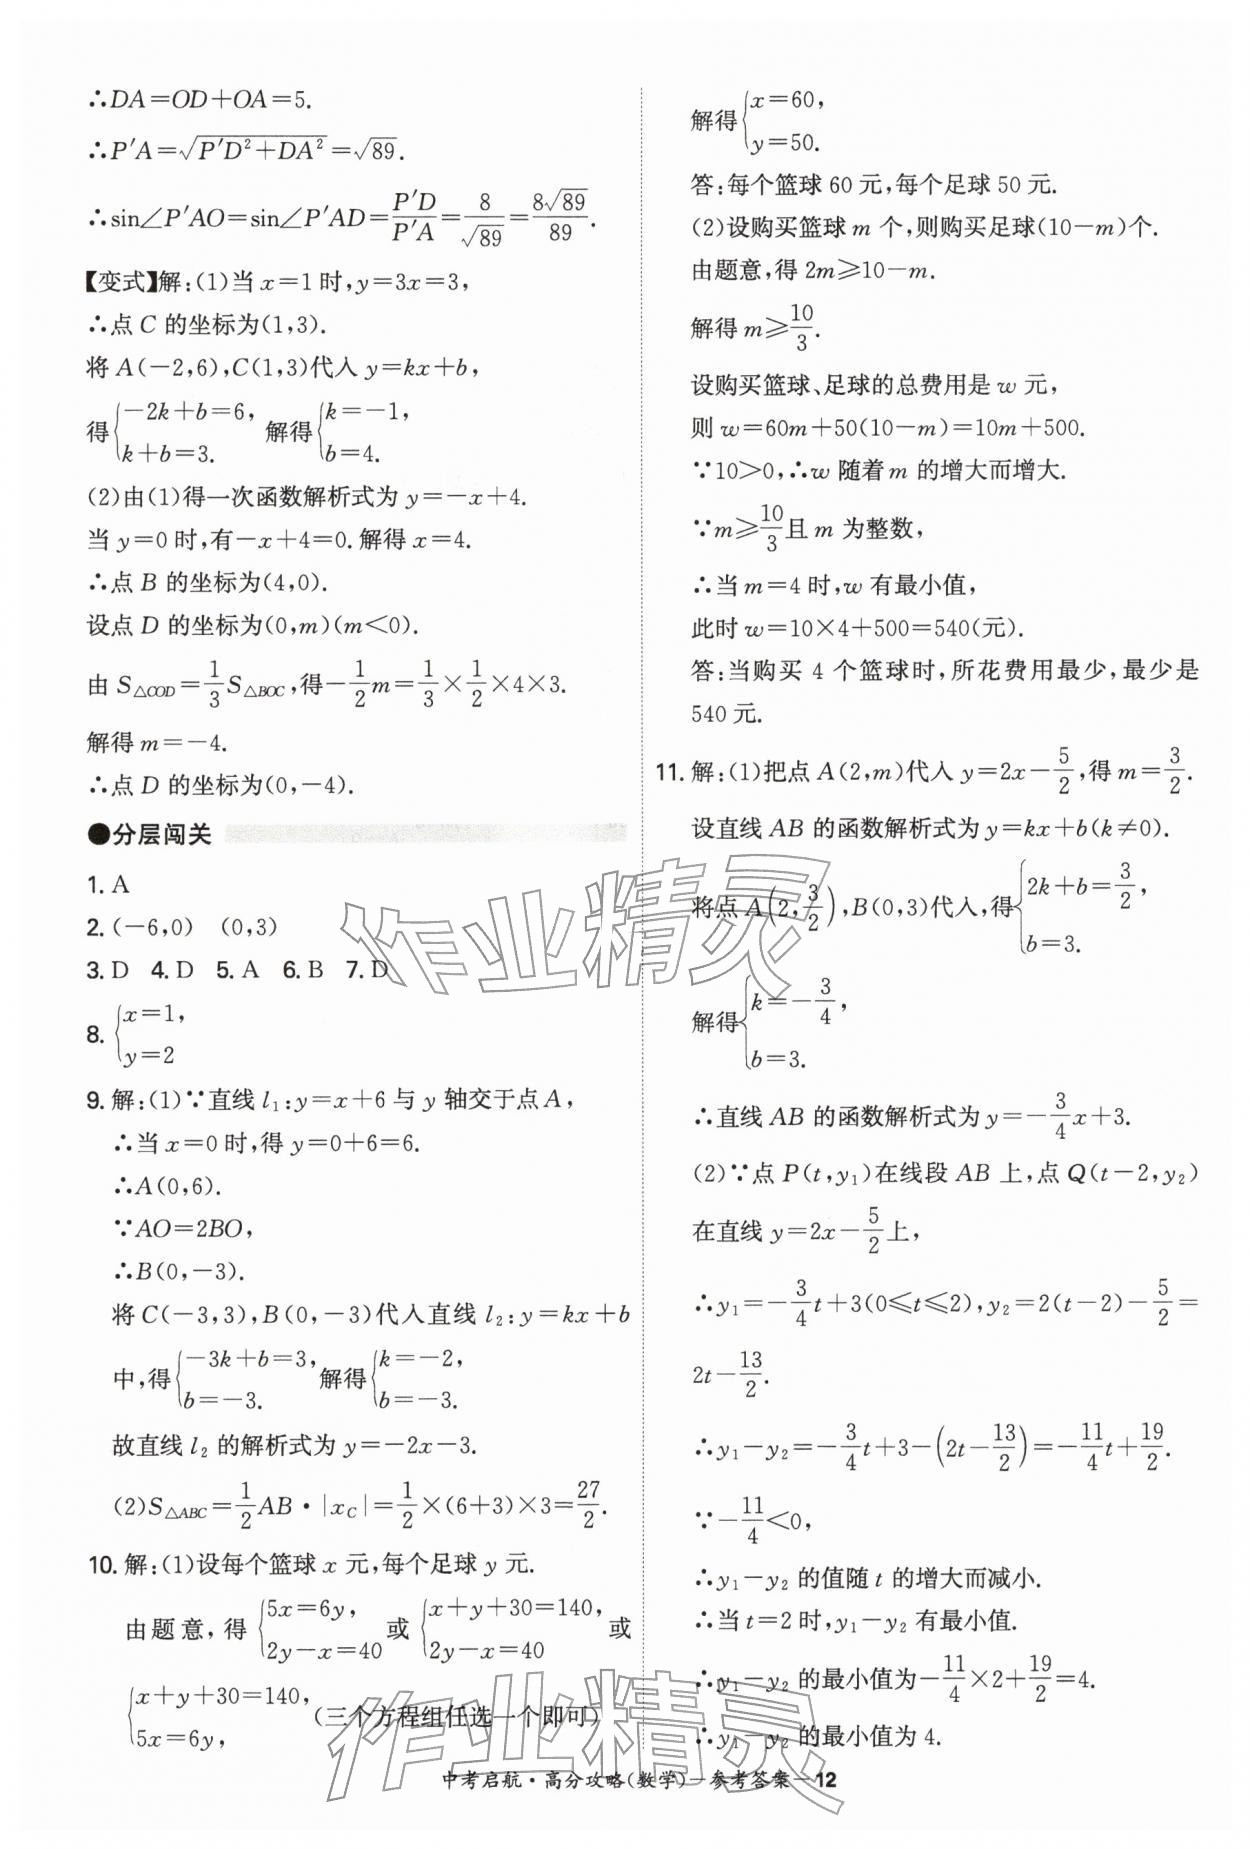 ∴DA=OD+OA=5.
∴P′A=√(P′D²+DA²)=√89.
∴sin∠P′AO=sin∠P′AD=P′D/P′A=8/√89=8√89/89.
【变式】解:(1)当 x=1 时,y=3x=3,
∴点 C 的坐标为(1,3).
将 A(-2,6),C(1,3)代入 y=kx+b,
得{-2k+b=6, k+b=3. 解得{k=-1, b=4.
(2)由(1)得一次函数解析式为 y=-x+4.
当 y=0 时,有-x+4=0.解得 x=4.
∴点 B 的坐标为(4,0).
设点 D 的坐标为(0,m)(m<0).
由 S△COD=1/3 S△BOC,得-1/2 m=1/3×1/2×4×3.
解得 m=-4.
∴点 D 的坐标为(0,-4).
●分层闯关
1. A
2. (-6,0) (0,3)
3. D 4. D 5. A 6. B 7. D
8. {x=1, y=2
9. 解:(1)∵直线 l₁:y=x+6 与 y 轴交于点 A,
∴当 x=0 时,得 y=0+6=6.
∴A(0,6).
∵AO=2BO,
∴B(0,-3).
将 C(-3,3),B(0,-3)代入直线 l₂:y=kx+b
中,得{-3k+b=3, b=-3. 解得{k=-2, b=-3.
故直线 l₂ 的解析式为 y=-2x-3.
(2)S△ABC=1/2 AB·|xC|=1/2×(6+3)×3=27/2.
10. 解:(1)设每个篮球 x 元,每个足球 y 元.
由题意,得{5x=6y, 2y-x=40 或{x+y+30=140, 2y-x=40 或
{x+y+30=140, 5x=6y, (三个方程组任选一个即可)
解得{x=60, y=50.
答:每个篮球 60 元,每个足球 50 元.
(2)设购买篮球 m 个,则购买足球(10-m)个.
由题意,得 2m≥10-m.
解得 m≥10/3.
设购买篮球、足球的总费用是 w 元,
则 w=60m+50(10-m)=10m+500.
∵10>0,∴w 随着 m 的增大而增大.
∵m≥10/3且 m 为整数,
∴当 m=4 时,w 有最小值,
此时 w=10×4+500=540(元).
答:当购买 4 个篮球时,所花费用最少,最少是
540 元.
11. 解:(1)把点 A(2,m)代入 y=2x-5/2,得 m=3/2.
设直线 AB 的函数解析式为 y=kx+b(k≠0).
将点 A(2,3/2),B(0,3)代入,得{2k+b=3/2, b=3.
解得{k=-3/4, b=3.
∴直线 AB 的函数解析式为 y=-3/4 x+3.
(2)∵点 P(t,y₁)在线段 AB 上,点 Q(t-2,y₂)
在直线 y=2x-5/2上,
∴y₁=-3/4 t+3(0≤t≤2),y₂=2(t-2)-5/2=
2t-13/2.
∴y₁-y₂=-3/4 t+3-(2t-13/2)=-11/4 t+19/2.
∵-11/4<0,
∴y₁-y₂ 的值随 t 的增大而减小.
∴当 t=2 时,y₁-y₂ 有最小值.
∴y₁-y₂ 的最小值为-11/4×2+19/2=4.
∴y₁-y₂ 的最小值为 4.
中考启航·高分攻略(数学)—参考答案—12
作业精灵
作业精灵